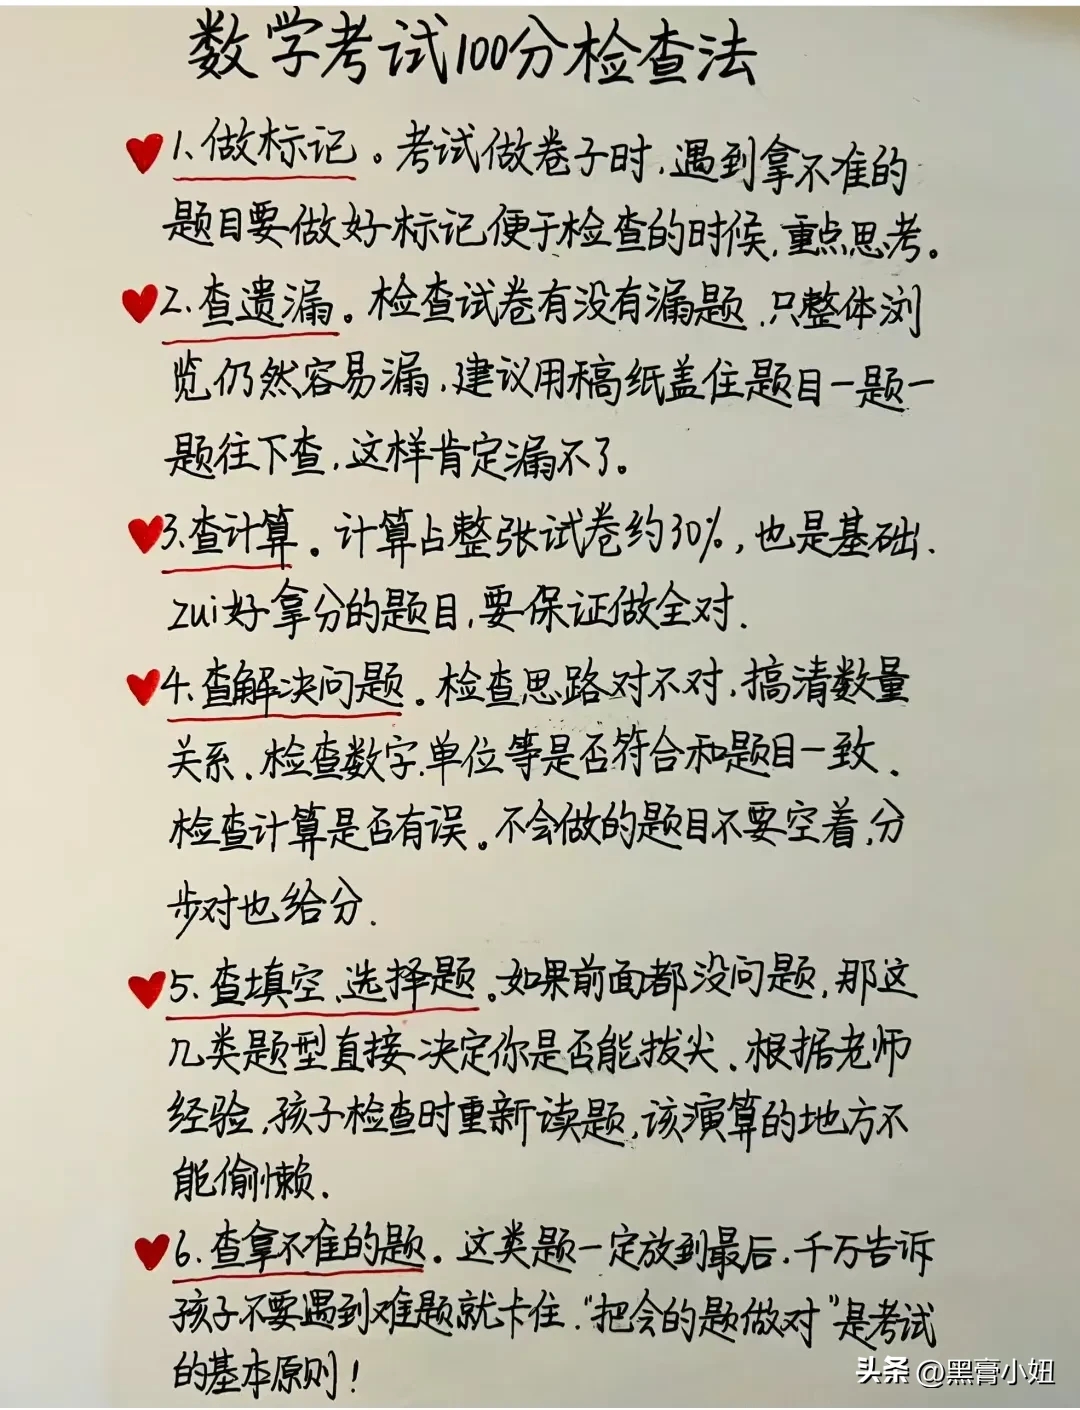 数学考试100分检查法
1、做标记。考试做卷子时,遇到拿不准的
题目要做好标记便于检查的时候,重点思考。
2、查遗漏。检查试卷有没有漏题,只整体浏
览仍然容易漏,建议用稿纸盖住题目一题一
题往下查,这样肯定漏不了。
3、查计算。计算占整张试卷约30%,也是基础.
zui好拿分的题目,要保证做全对.
4、查解决问题。检查思路对不对,搞清数量
关系、检查数字、单位等是否符合和题目一致、
检查计算是否有误。不会做的题目不要空着,分
步对也给分.
5、查填空、选择题。如果前面都没问题,那这
几类题型直接决定你是否能拔尖、根据老师
经验,孩子检查时重新读题,该演算的地方不
能偷懒.
6、查拿不准的题。这类题一定放到最后,千万告诉
孩子不要遇到难题就卡住."把会的题做对"是考试
的基本原则!
头条 @黑膏小妞